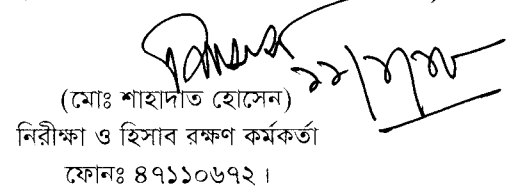 (মোঃ শাহাদাত হোসেন)
নিরীক্ষা ও হিসাব রক্ষণ কর্মকর্তা
ফোনঃ ৪৭১১০৬৭২।